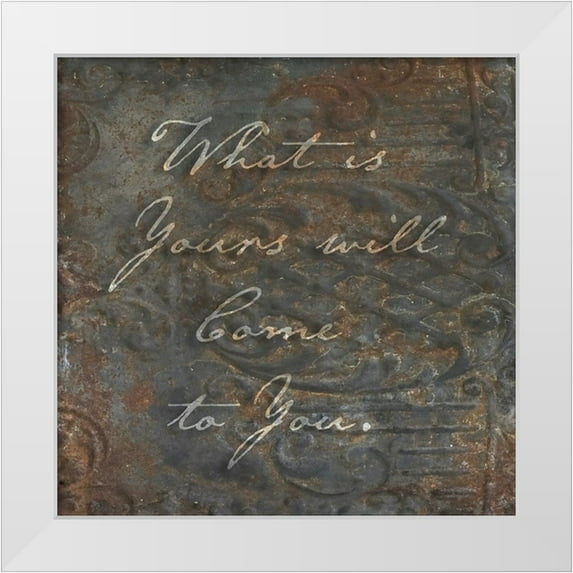 What is
Yours will
Come
to You.